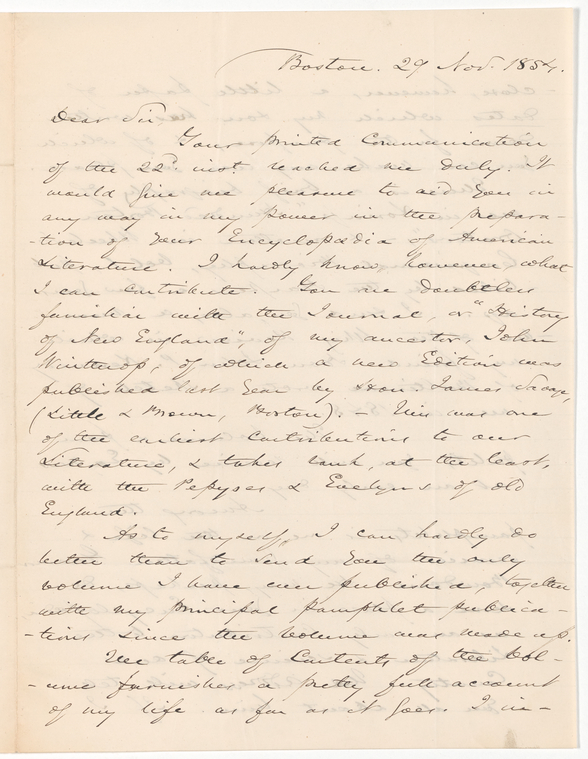 Boston. 29 Nov. 1854.
Dear Sir
Your printed Communication
of the 22d. inst. reached me duly. It
would give me pleasure to aid you in
any way in my power in the prepara-
-tion of your Encyclopædia of American
Literature. I hardly know, however, what
I can contribute. You are doubtless
familiar with the Journal, or "History
of New England", of my ancestor, John
Winthrop, of which a new Edition was
published last year by Hon: James Savage,
(Little & Brown, Boston). - This was one
of the earliest contributions to our
Literature, & takes rank, at the least,
with the Pepyses & Evelyns of old
England.
As to myself, I can hardly do
better than to send you the only
volume I have ever published, together
with my principal pamphlet publica-
-tions since the volume was made up.
The table of Contents of the vol-
-ume furnishes a pretty full account
of my life as far as it goes. I in-